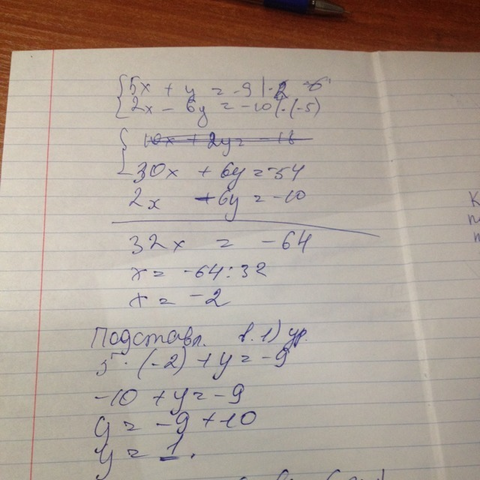 5x + y = -9 |· 6
2x - 6y = -10 |·(-5)
10x + 2y = -18
30x + 6y = -54
2x - 6y = -10
32x = -64
x = -64 : 32
x = -2
Подставл. в 1) ур.
5 · (-2) + y = -9
-10 + y = -9
y = -9 + 10
y = 1.